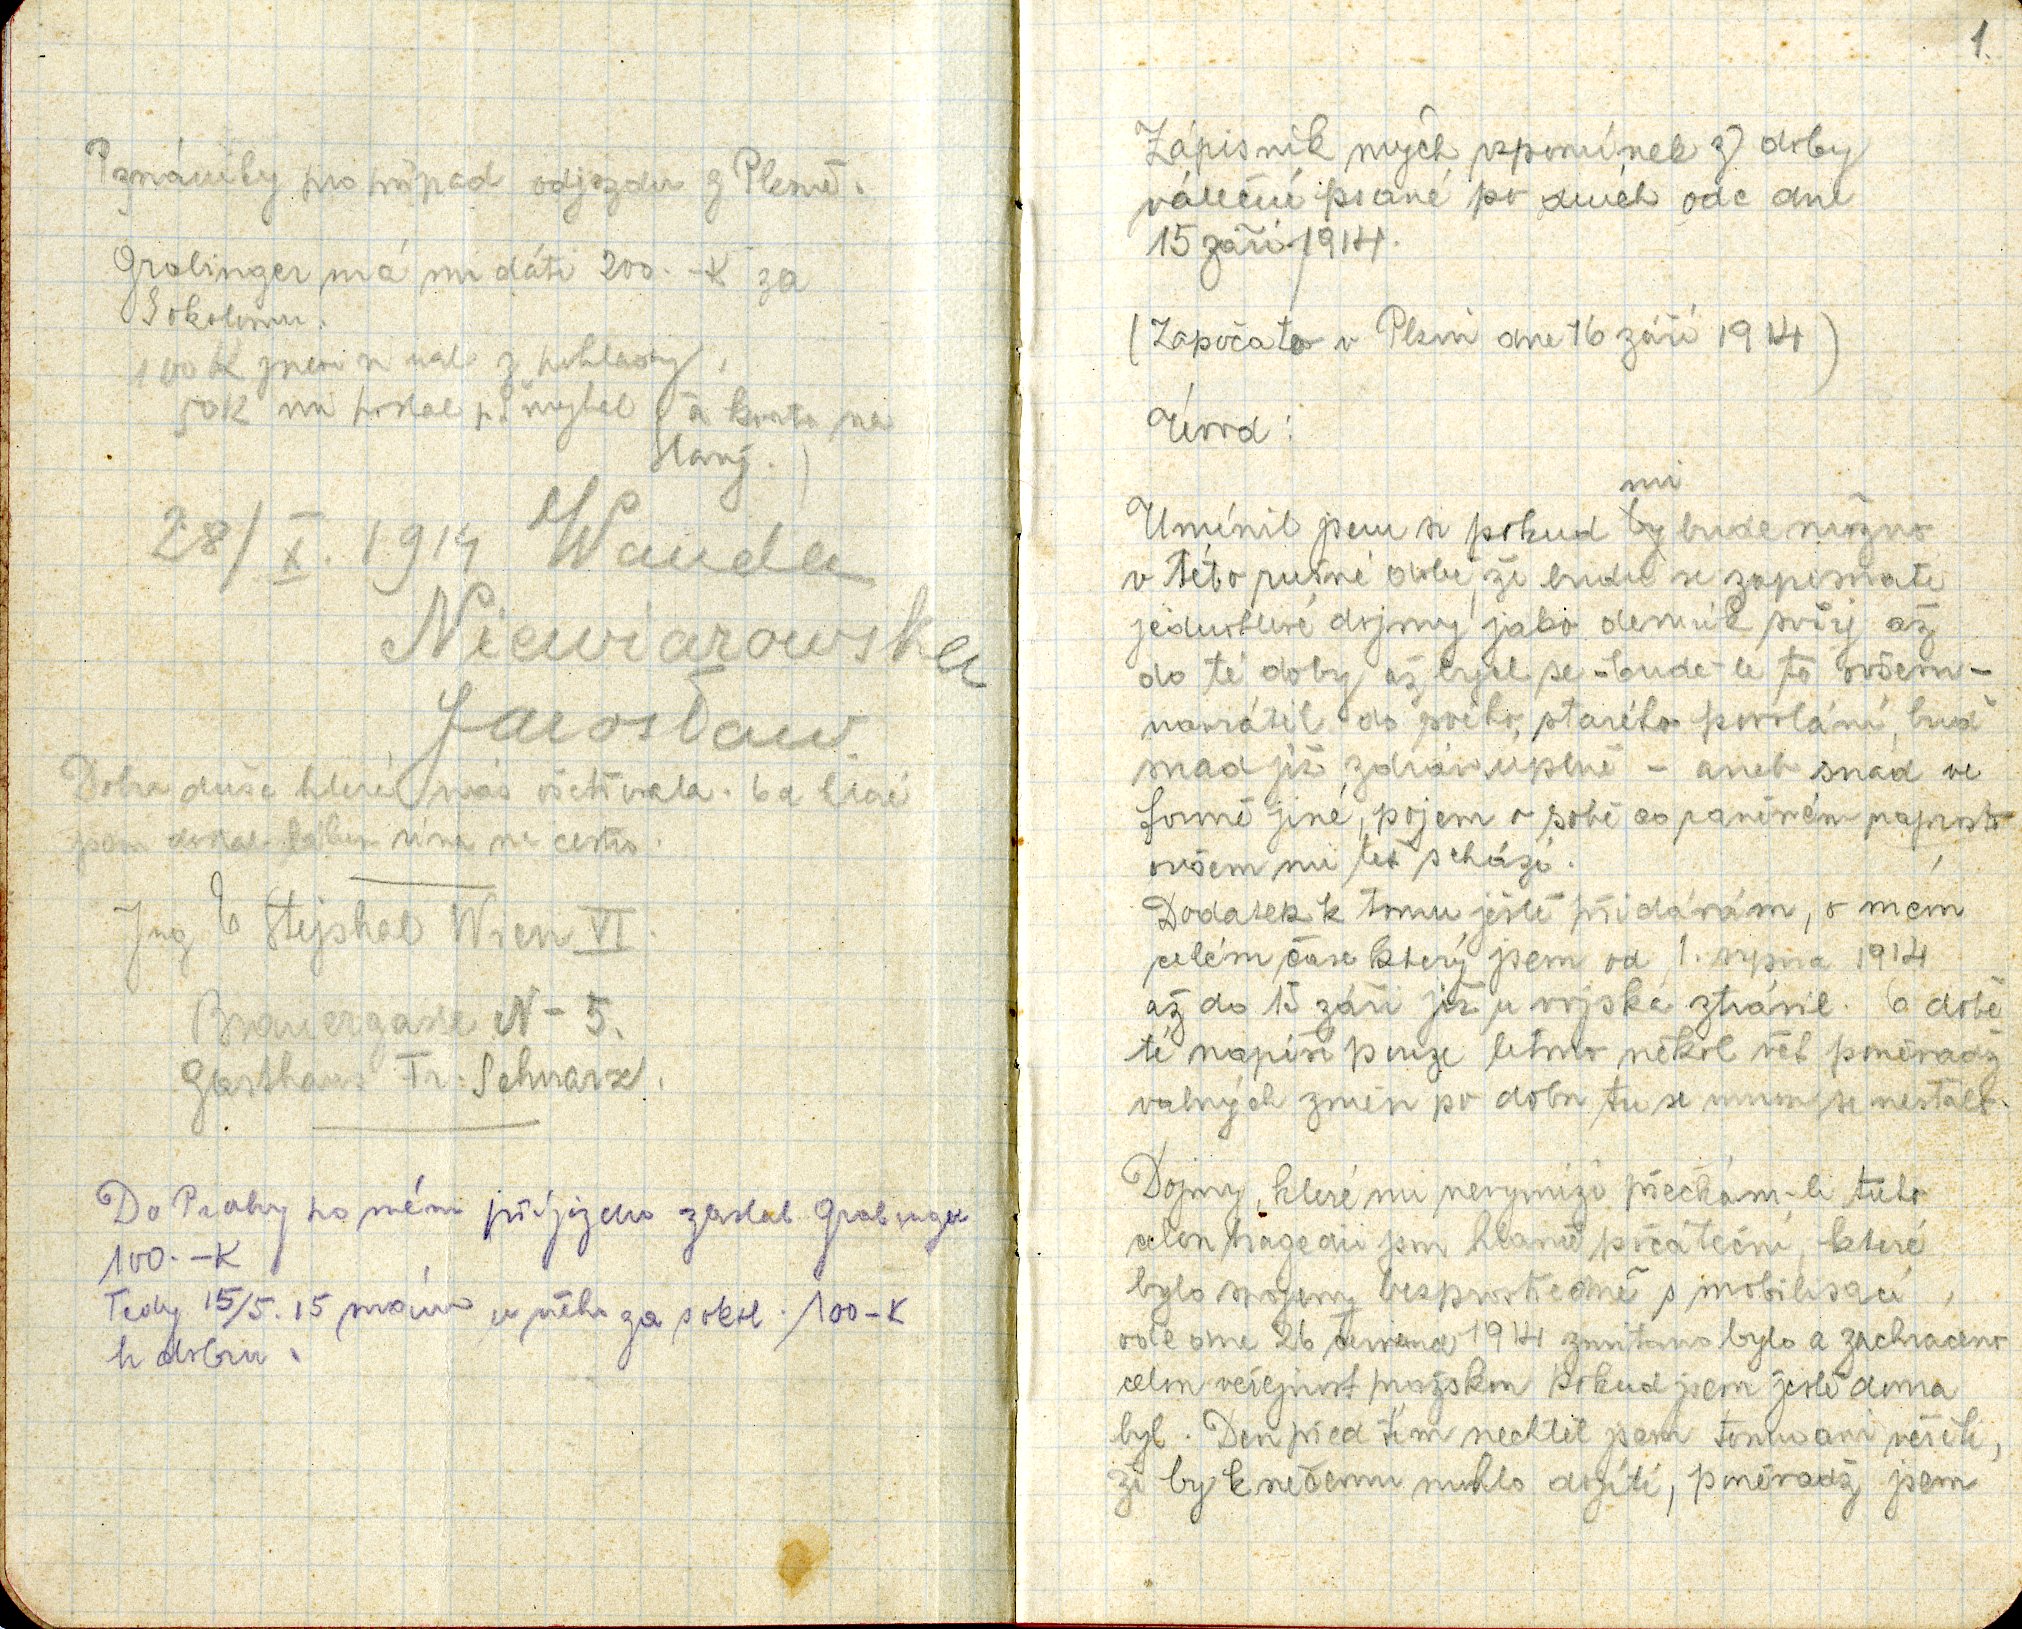 Poznámky pro případ odjezdu z Plzně.
Grolinger má mi dáti 200.-K za
Sokolovnu.
100 K jsem
50K mi poslal
Slaný.)
28/X. 1914 Wanda
Niewiarowska
Jarosław
Dobrá duše která nás ošetřovala. Od které
jsem dostal láhev vína na cestu.
Ing E Stejskal Wien VI.
Brauergasse N-5.
Gasthaus Fr. Schwarz.
Do Prahy po mém příjezdu zaslal Grolinger
100.-K
Tedy 15/5.15 mám u něho za sokol. 100-K
k dobru.
1.
Zápisník mých vzpomínek z doby
válečné psané po dnech ode dne
15 září 1914.
(Započato v Plzni dne 16 září 1914)
Úvod:
mi
Umínil jsem si pokud by bude možno
v této rušné době, že budu si zapisovati
jednotlivé dojmy jako deník svůj až
do té doby až bych se - bude-li to ovšem -
navrátil do svého, starého povolání, buď
snad již zdráv úplně - aneb snad ve
formě jiné, pojem o sobě co raněném naprosto
ovšem mi teď schází.
Dodatek k tomu ještě přidávám, o mém
celém čase který jsem od 1. srpna 1914
až do 15 září již u vojska ztrávil. O době
té napíši pouze letmo několik vět poněvadž
valných změn po dobu tu se mnou se nestalo.
Dojmy, které mi nevymizí přečkám-li tuto
celou tragedii jsou hlavně počáteční, které
bylo spojeny bezprostředně s mobilisací,
ode dne 26 července 1914 zmítáno bylo a zachváceno
celou veřejnost pražskou pokud jsem ještě doma
byl. Den před tím nechtěl jsem tomu ani věřiti,
že by k něčemu mohlo dojíti, poněvadž jsem